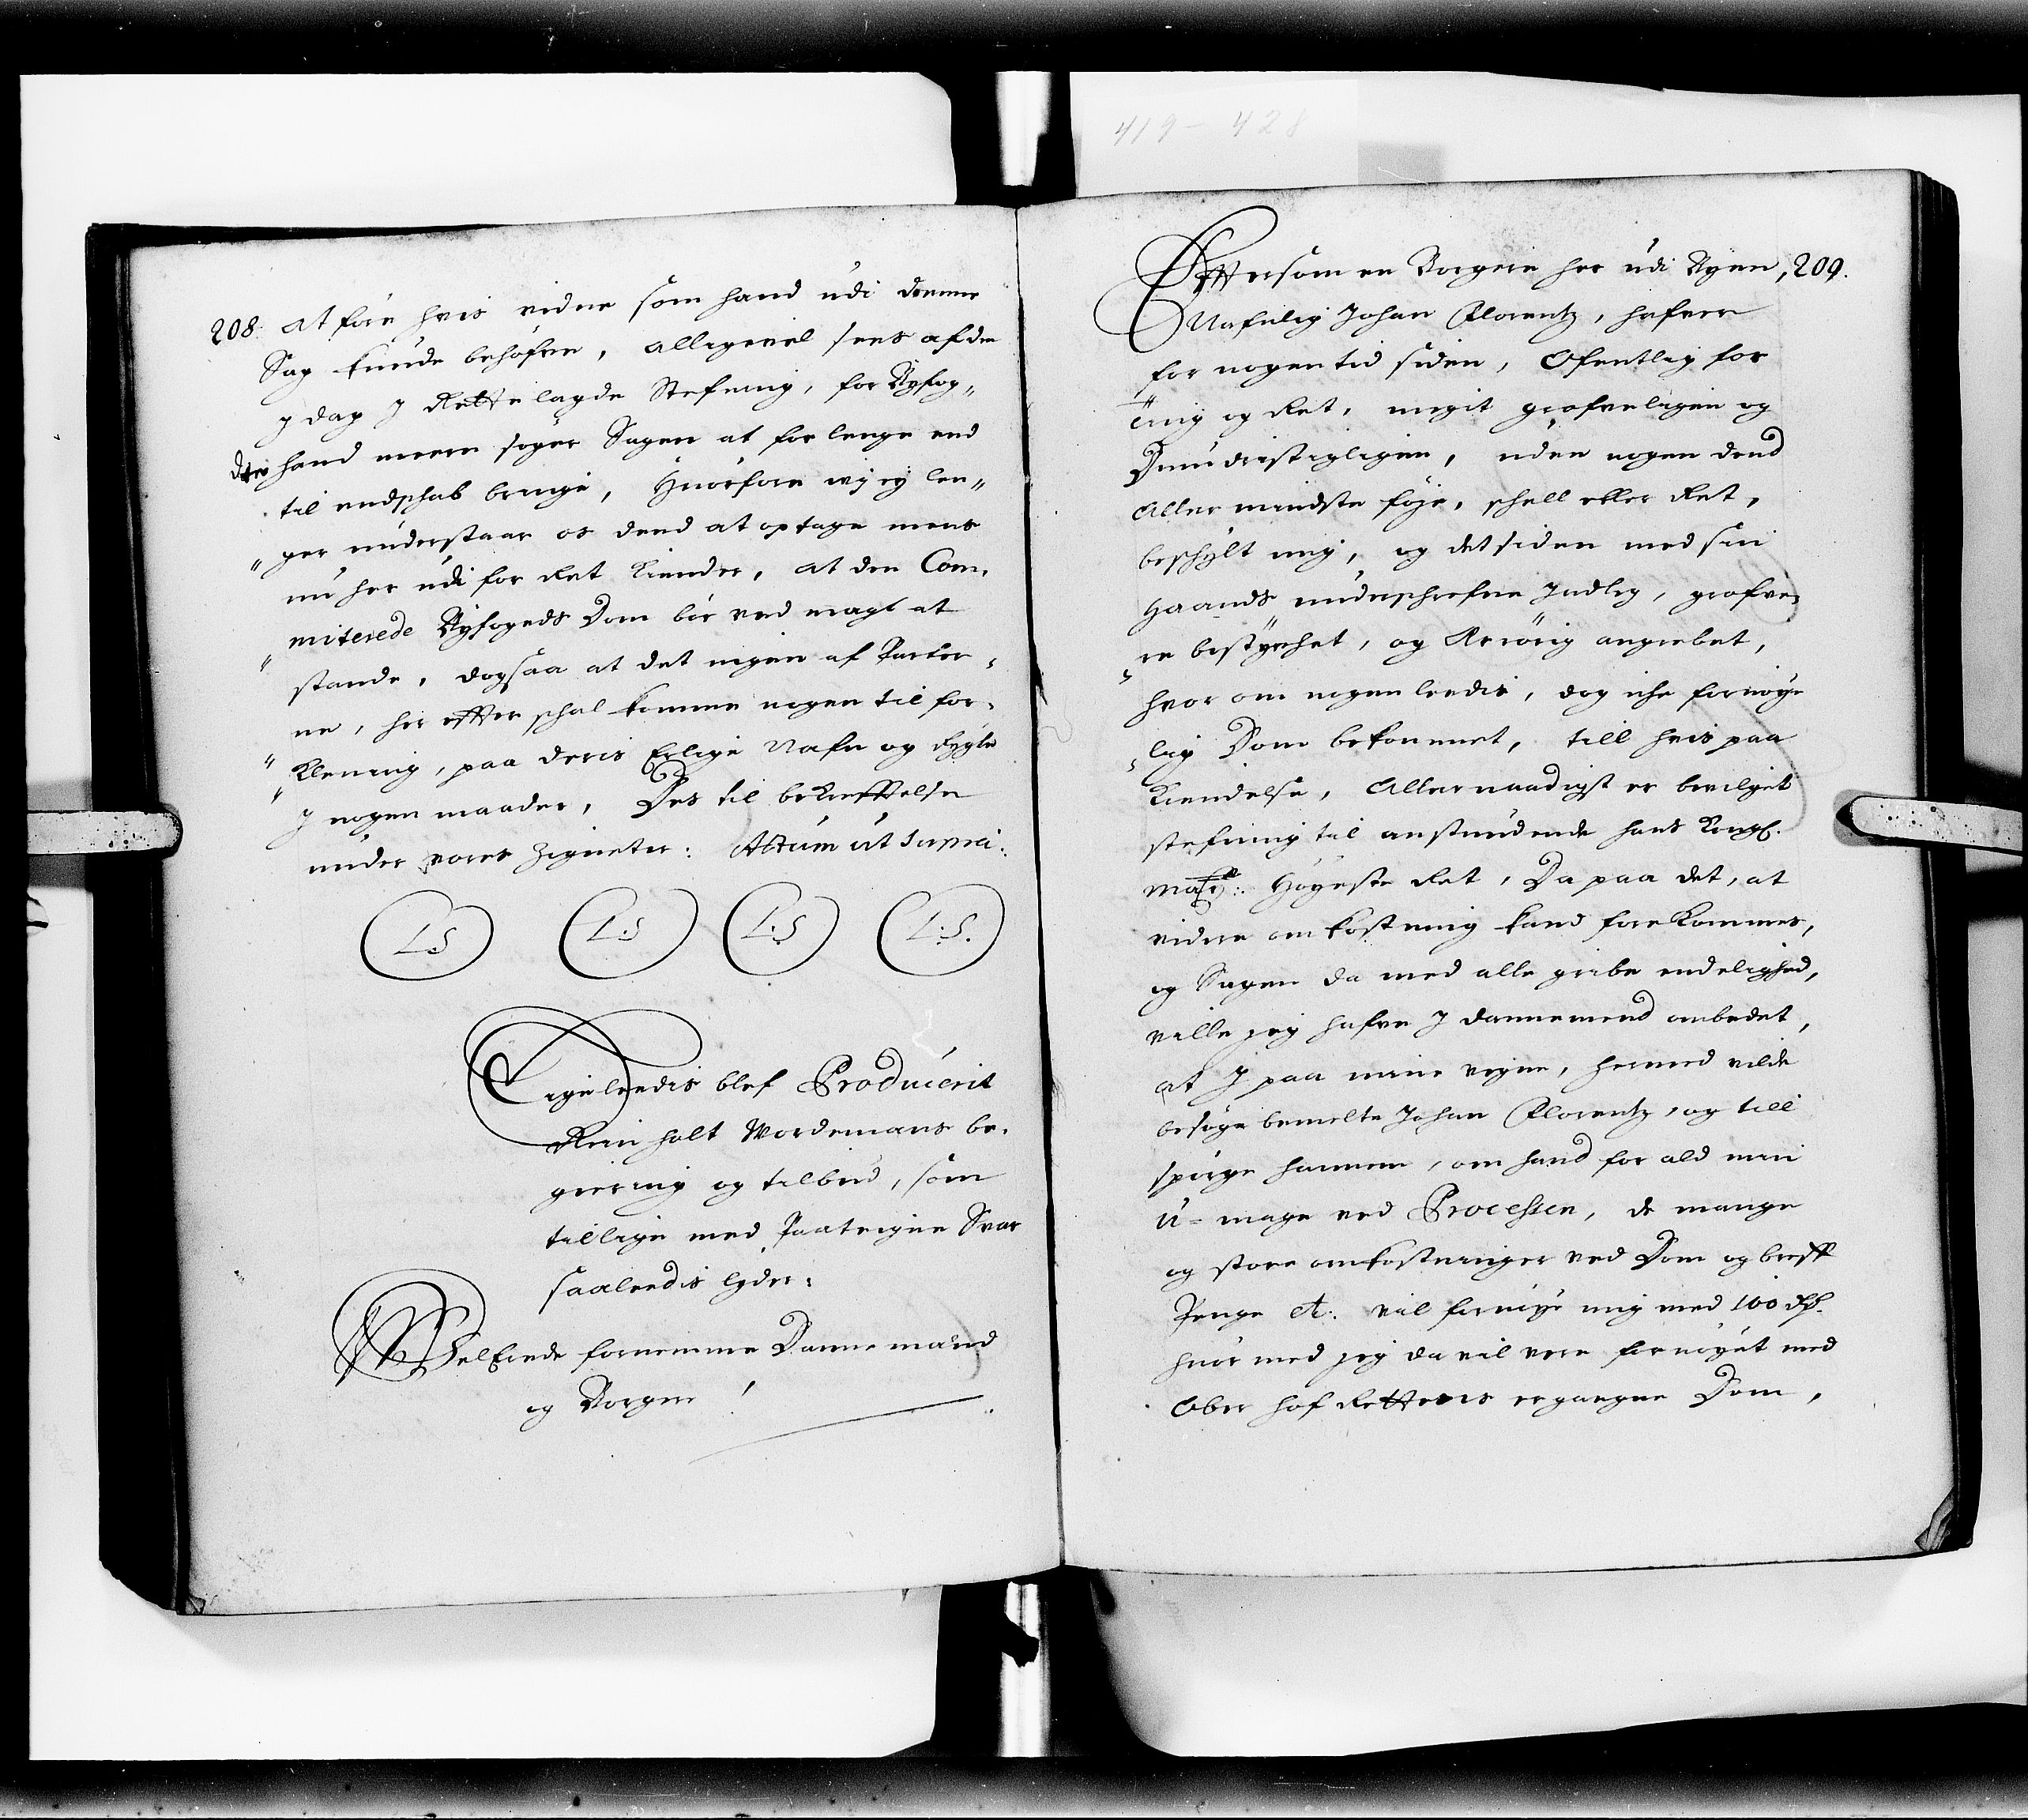 419 - 428
208. at före hvis vidne som hand udi denne
Sag kunde behöfve, alligevel sees af den
j dag J Rette lagde Stefning, for Byfog„
den hand meere söger Sagen at forlenge end
til endschab bringe, Hvorfore wj ej len„
„ger understaar os dend at optage mens
nu her udi for Ret kiender, at den Com„
miterede Byfogeds Dom bör ved magt at
„stande, dogsaa at det ingen af Parter„
ne, her effter schal komme nogen til for„
„Klening, paa deris Erlige Nafn og Rygte
J nogen maader, Des til bekrefftelse
under vores Zigneter: Actum ut Supra:
L:S L:S L:S L:S.
Ligeleedis blef Producerit
Reinholt Wordemans be„
giering og tilbud, som
tillige med paateigne Svar
saaleedis lyder:
WelErede fornemme Danne mænd
og Borgere!
Effter som en Borgere her udi Byen, 209.
Nafnlig Johan Florentz, hafver
for nogen tid siden, Ofentlig for
Ting og Ret, megit grofveligen og
Dumdristigligen, uden nogen dend
Aller mindste föje, schell eller Ret,
beschylt mig, og det siden med sin
Haands underschrefne Indleg, grofve„
„re bestyrchet, og Ærrörig angrebet,
hvor om nogenleedis, dog iche fornöye
„lig Dom bekommet, till hvis paa
Kiendelse, Allernaadigst er bevilget
stefning til anstundende hans Kongl.
Mayts: Höyeste Ret, Da paa det, at
videre omkostning kand forekommes,
og Sagen da med alle gribe endelighed,
ville jeg hafve J dannemend ombedet,
at J paa mine vegne, hermed vilde
besöge bemelte Johan Florentz, og till
spörge hannem, om hand for ald min
u-mage ved Processen, de mange
og store omkostninger ved Dom og breff
Penge etc: vil fornöye mig med 100 Rdr.
hvor med jeg da vil vere fornöyet med
Ober hof Rettens ergangne Dom,